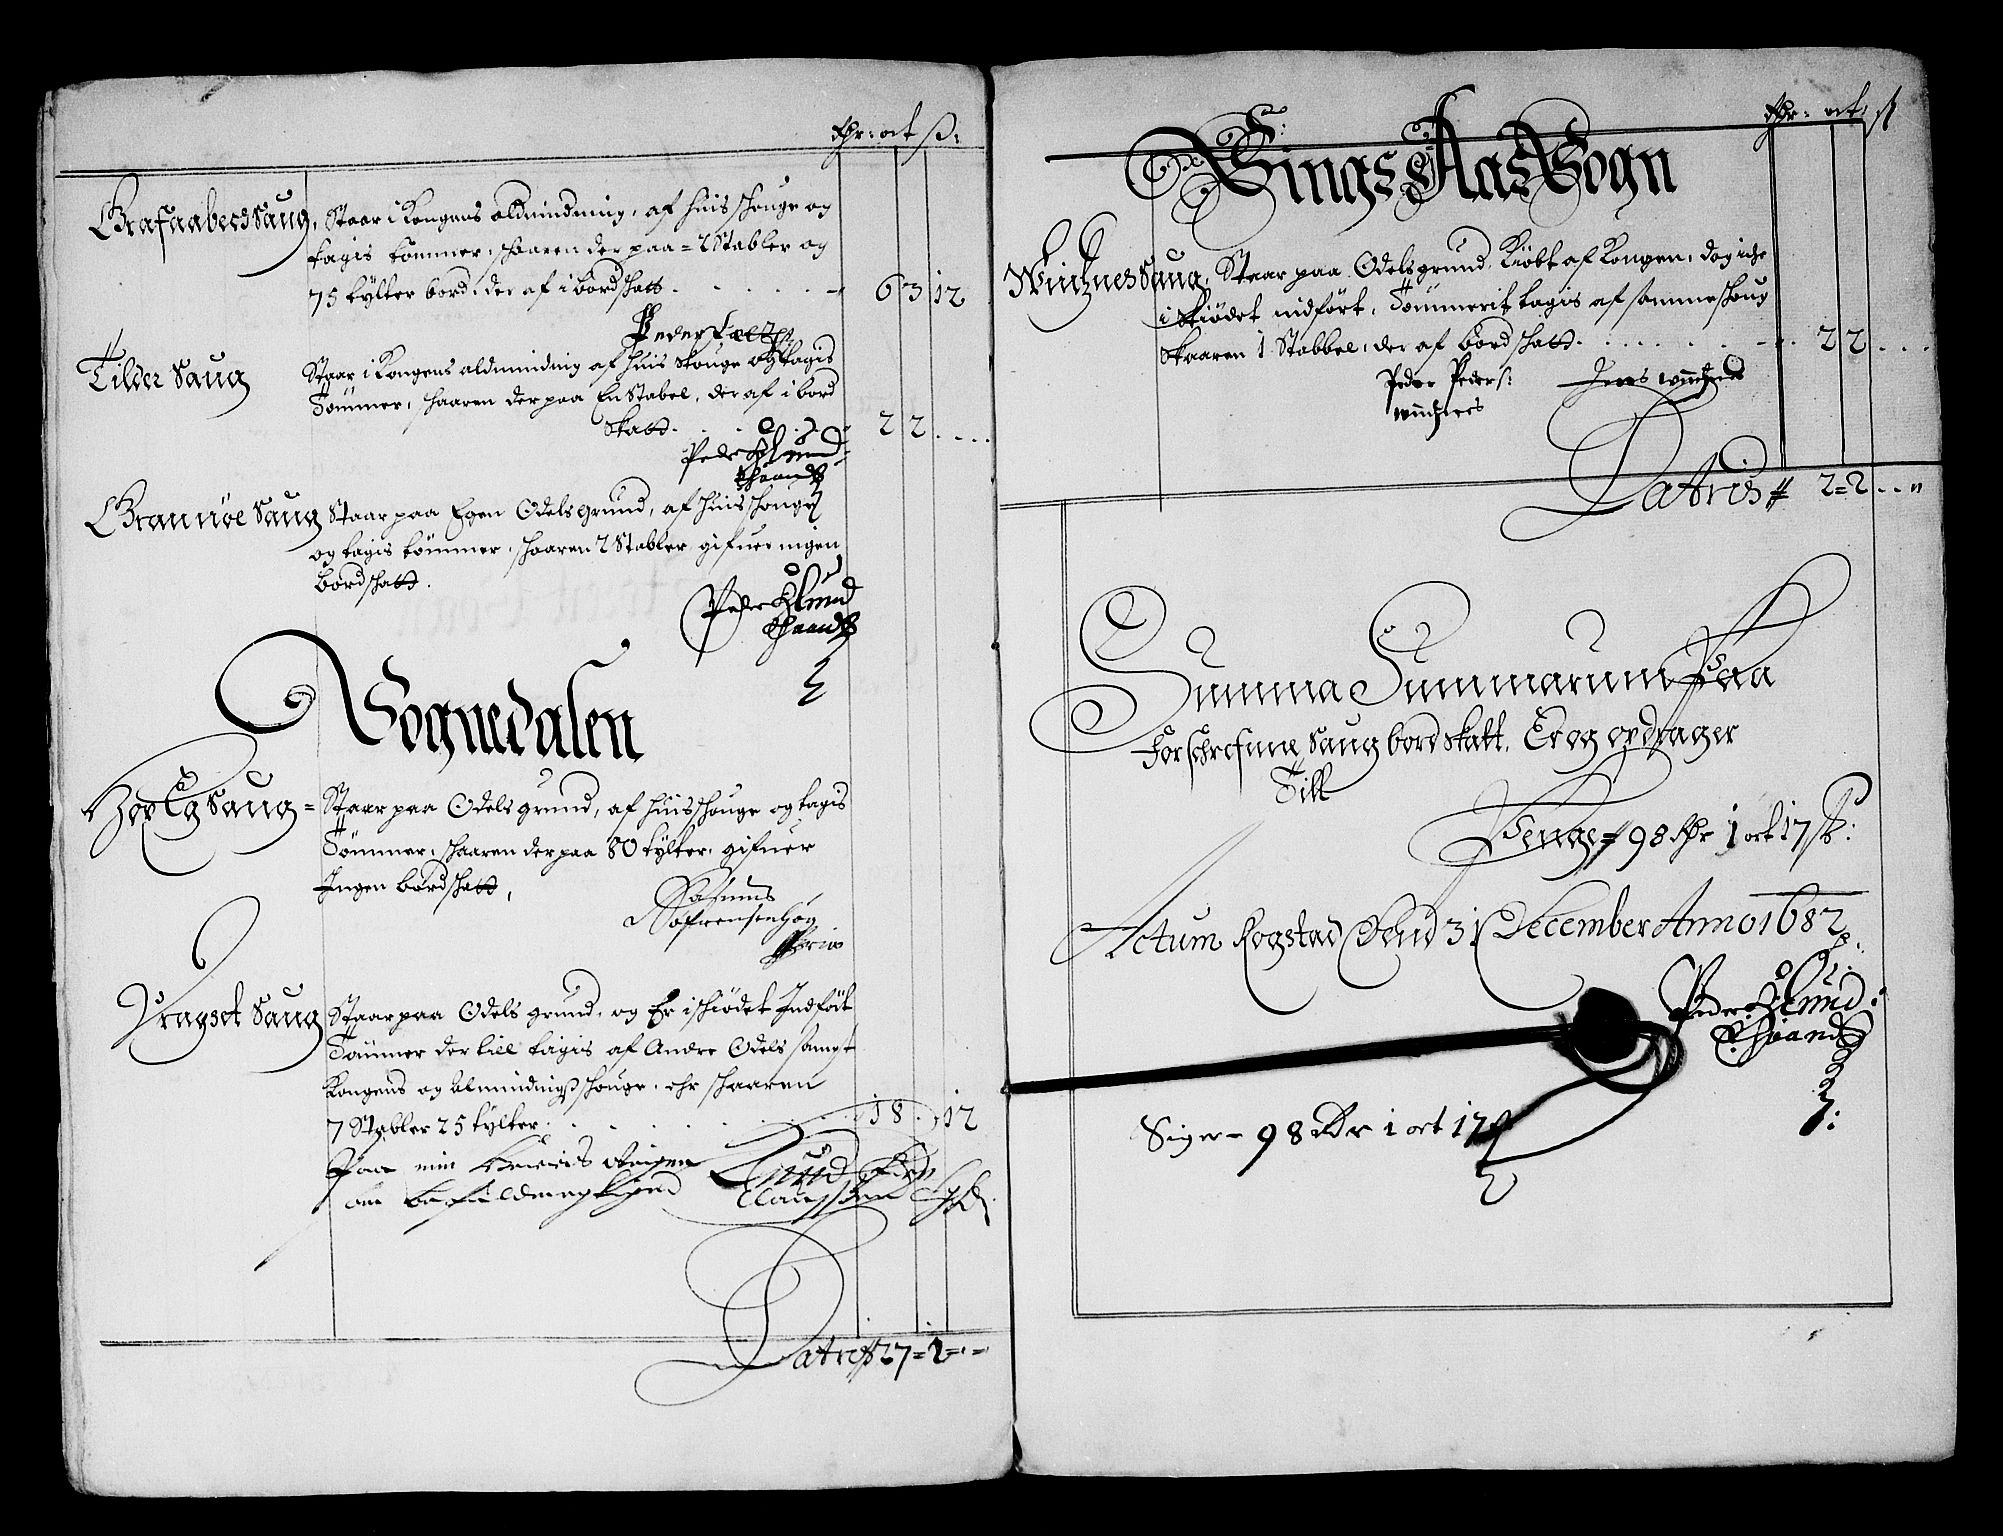 Rdr: ort ß:
Grafaabechs Saug, Staar i Kongens aldmindning, af huis schouge og
tagis tömmer, schaaren der paa = 2 Stabler og
75 tylter bord, der af i bordschatt . . . . 6 3 12
Peder
Tilder Saug Staar i Kongens aldminding af huis Skouge og tagis
Tömmer, schaaren der paa En Stabel, der af i bord
Skatt. . . . . . 2 2 . . . .
Peder
Gramnöe Saug Staar paa Egen Odels grund, af huis schouge
og tagis tömmer, schaaren 2 Stabler gifuer ingen
bordschatt.
Peder
Sognedalen
Hov Elg Saug = Staar paa Odels grund, af huis schouge og tagis
Tömmer, schaaren der paa 80 tylter, gifuer
Ingen bordschatt,
Rasmus
Vragset Saug Staar paa Odels grund, og Er i schiödet Indfört
Tömmer der till tagis af Andre Odels sampt
Kongens og Almindings schouge, ehr schaaren
7 Stabler 25 tylter . . . . . 18 . 12
Paa min
Knud
Claussen
Latris 27 = 2 = -
Rdr: ort, ß
Sings Aas Sogn
Winsnes Saug, Staar paa Odels grund, Kiöbt af Kongen, dog iche
i Skiödet indfört, Tömmerit tagis af samme schoug
Skaaren 1 Stabbel, der af bord schatt . . . . . 2 2 . . .
Peder Peders: Jens Winsnes
Winsnes
Latris 2 = 2 . . "
Summa Summarum Paa
Forschrefune Saug bord skatt, Er og opdrager
Till
Penge 98 Rdr 1 ort 17 ß:
Actum Rogstad Dend 31 December Anno 1682
Peder
Siger = 98 Rdr 1 ort 17 ß